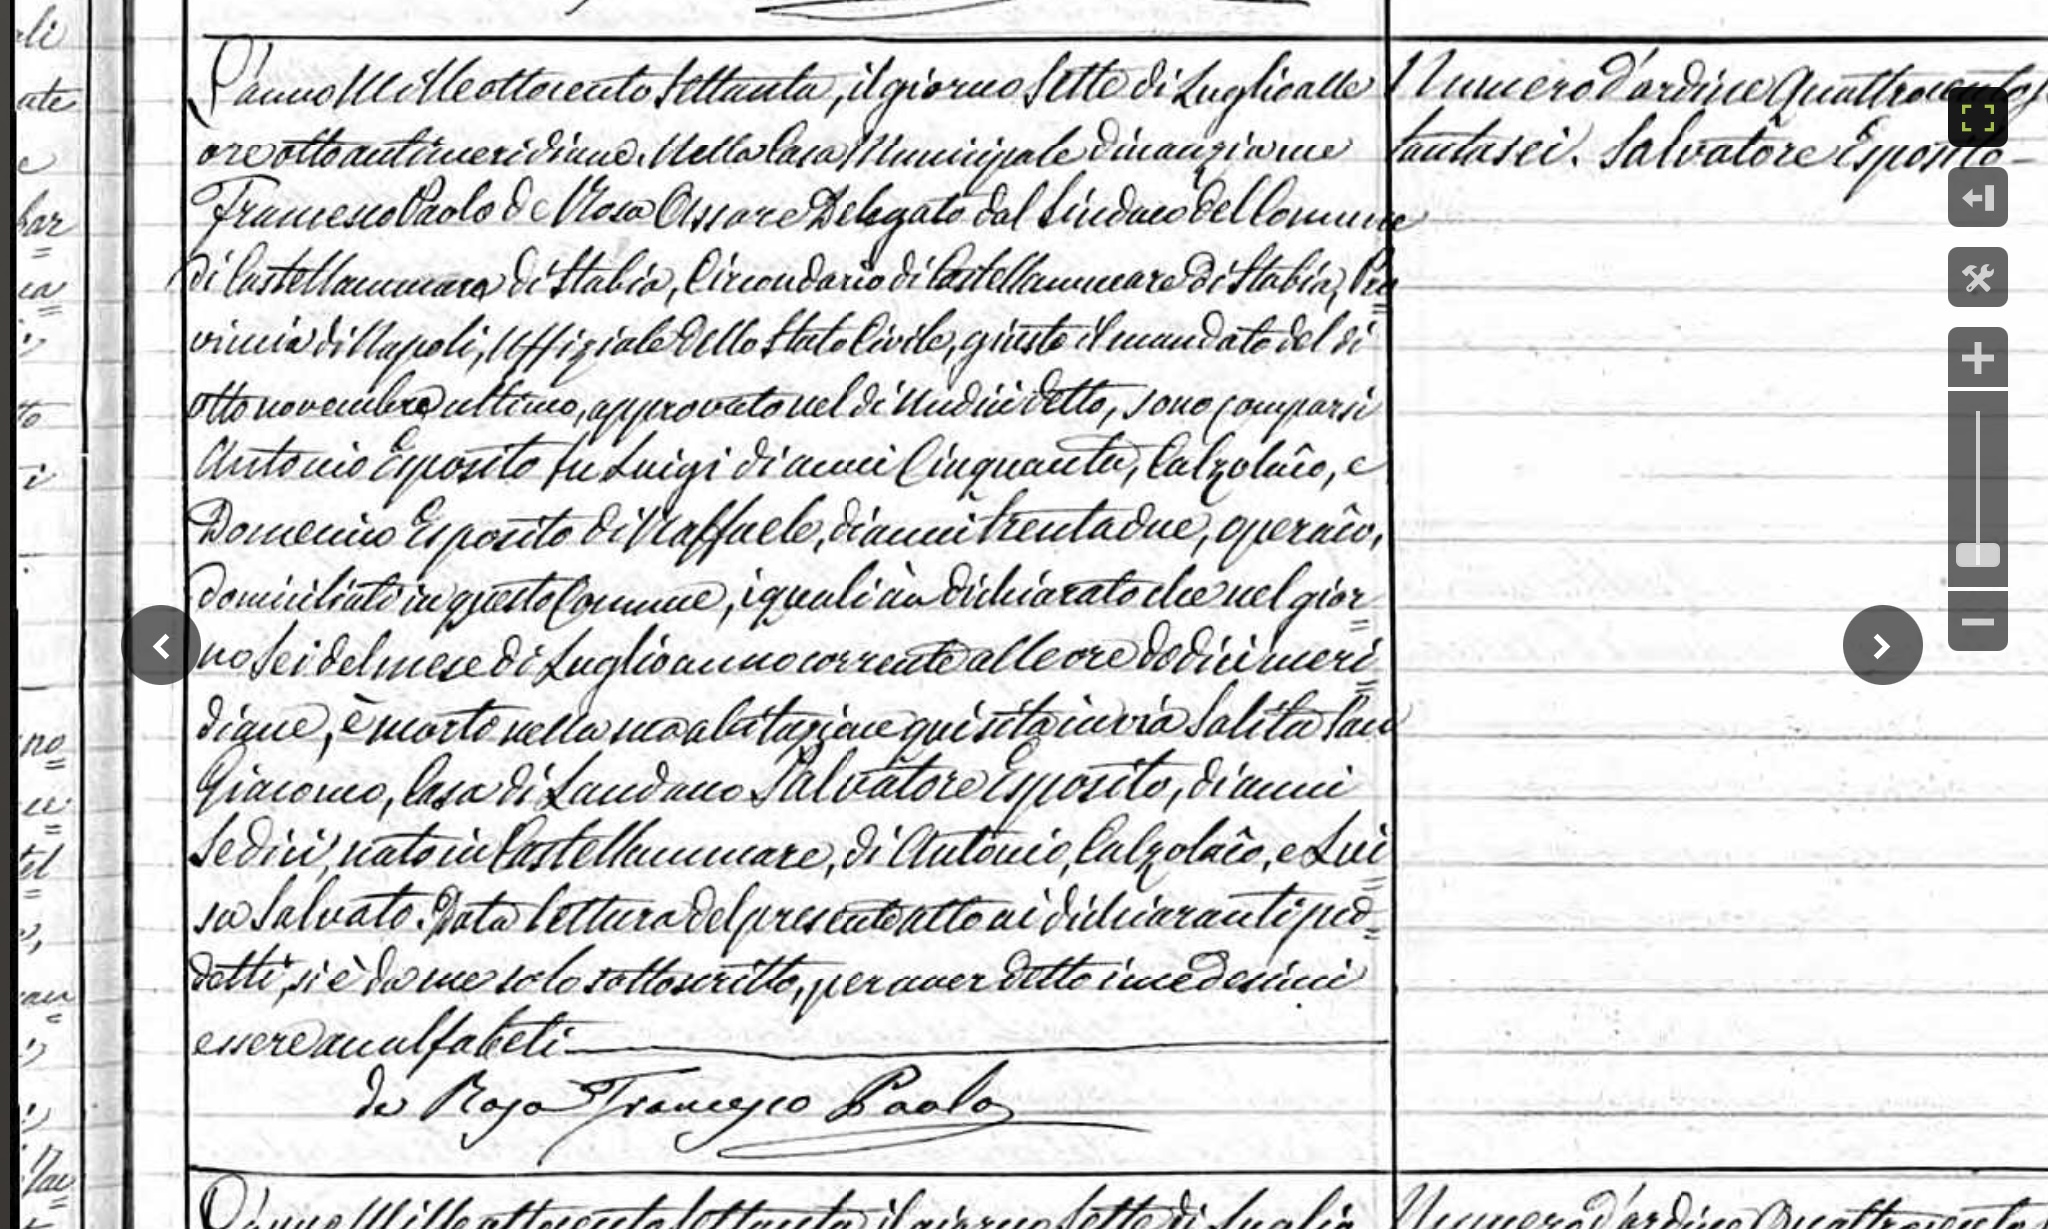 L'anno Milleottocento settanta, il giorno sette di Luglio alle
ore otto antimeridiane. Nella Casa Municipale dinanzi a me
Francesco Paolo de Rosa Assessore Delegato dal Sindaco del Comune
di Castellammare di Stabia, Circondario di Castellammare di Stabia, Pro
vincia di Napoli, Uffiziale dello Stato Civile, giusto il mandato del dì
otto novembre ultimo, approvato nel dì Undici detto, sono comparsi
Antonio Esposito fu Luigi di anni Cinquanta, Calzolaio, e
Domenico Esposito di Raffaele, di anni trentadue, operaio,
domiciliati in questo Comune, i quali àn dichiarato che nel gior
no sei del mese di Luglio anno corrente alle ore dodici meri
diane, è morto nella sua abitazione qui sita in via Salita San
Giacomo, Casa di Laudano Salvatore Esposito, di anni
Sedici, nato in Castellammare, di Antonio, Calzolaio, e Lui
sa Salvato. Data lettura del presente atto ai dichiaranti pred
detti, si è da me solo sottoscritto, per aver detto i medesimi
essere analfabeti
de Rosa Francesco Paolo
Numero d'ordine
tantasei. Salvatore Esposito
L'anno Milleottocento settanta, il giorno sette di Luglio
Numero d'ordine